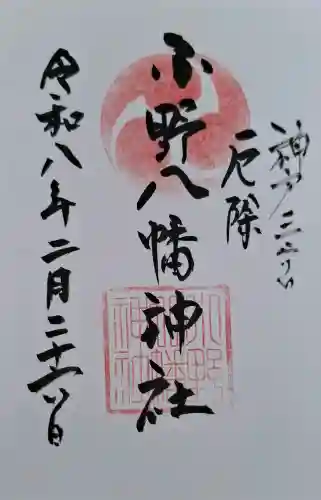 神戸三宮
厄除
小野八幡神社
令和八年二月二十六日
小野
八幡
神社